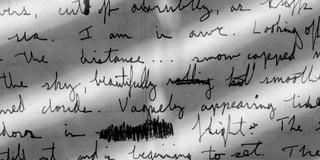 cut off abruptly, as
us. I am in awe. Looking
the distance... snow capped
the sky, beautifully smooth
clouds. Vaguely appearing like
in flight. The
and beginning to set. The